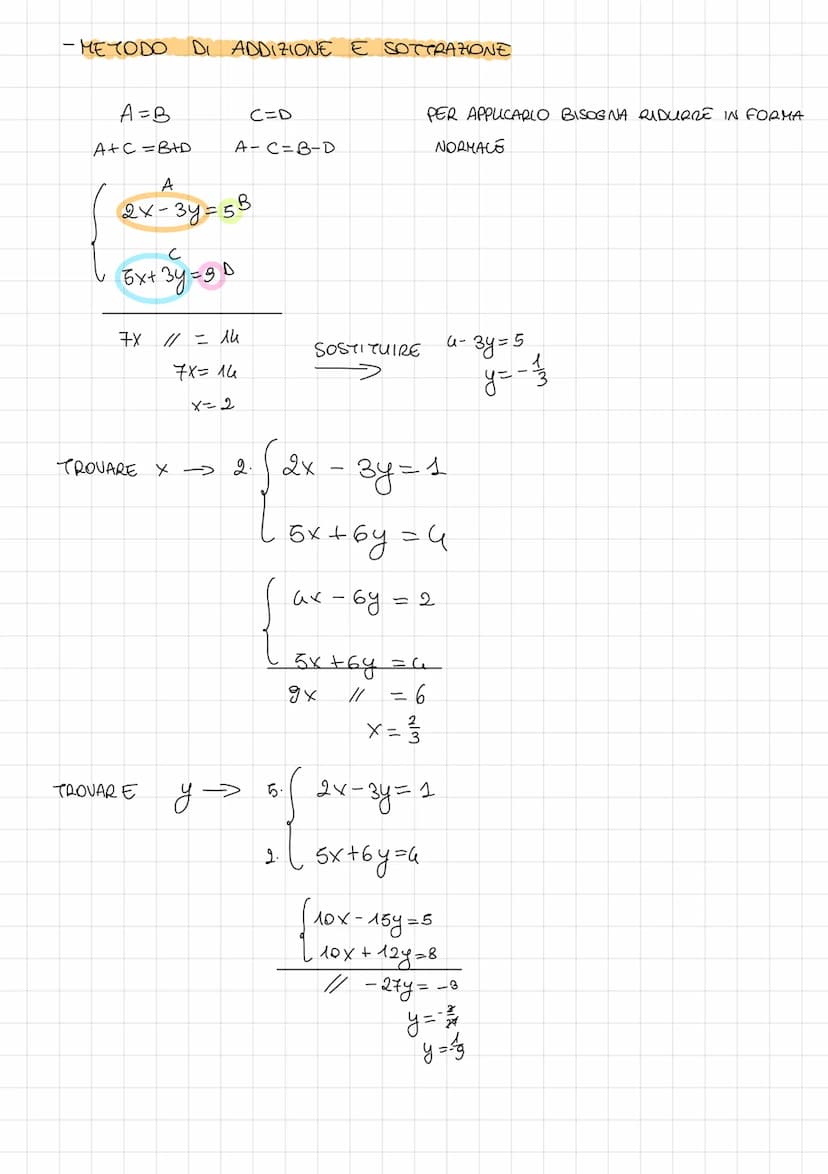 - METODO DI ADDIZIONE E SOTTRAZIONE
A=B C=D PER APPLICARLO BISOGNA RIDURRE IN FORMA
A+C=B+D A-C=B-D NORMALE
A
2x-3y=5 B
C
5x+3y=9 D
7x // = 14
7x=14
x=2
SOSTITUIRE 4-3y=5
y=-1/3
TROVARE x → 2. 2x - 3y = 1
5x+6y = 4
4x - 6y = 2
5x+6y = 4
9x // = 6
x = 2/3
TROVARE y → 5. 2x-3y=1
2. 5x+6y=4
10x-15y=5
10x+12y=8
// -27y=-3
y=-3/27
y=-1/9